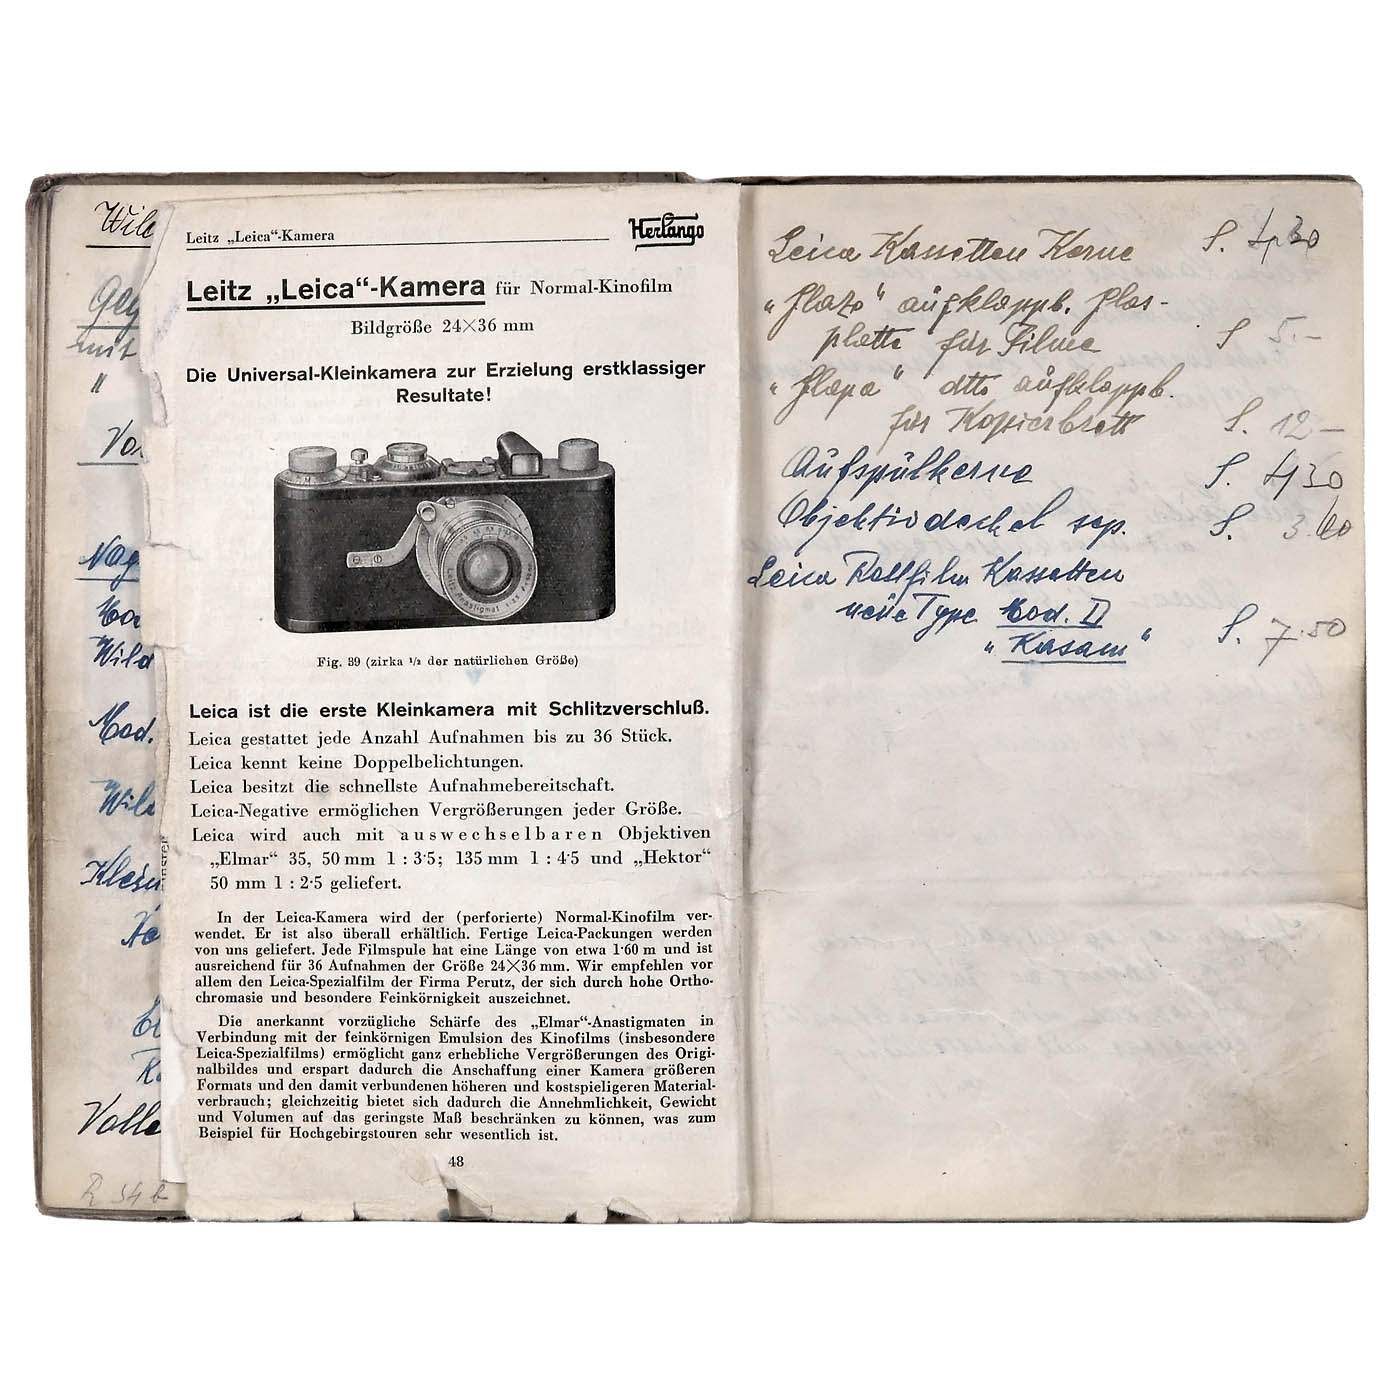 Wil
mit
"
Vor
Wild
Mod.
Wil
Klein
Volle
R 54 b
Leitz „Leica“-Kamera Herlango
Leitz „Leica“-Kamera für Normal-Kinofilm
Bildgröße 24×36 mm
Die Universal-Kleinkamera zur Erzielung erstklassiger
Resultate!
Leitz Anastigmat
Fig. 39 (zirka 1/2 der natürlichen Größe)
Leica ist die erste Kleinkamera mit Schlitzverschluß.
Leica gestattet jede Anzahl Aufnahmen bis zu 36 Stück.
Leica kennt keine Doppelbelichtungen.
Leica besitzt die schnellste Aufnahmebereitschaft.
Leica-Negative ermöglichen Vergrößerungen jeder Größe.
Leica wird auch mit auswechselbaren Objektiven
„Elmar“ 35, 50 mm 1 : 3·5; 135 mm 1 : 4·5 und „Hektor“
50 mm 1 : 2·5 geliefert.
In der Leica-Kamera wird der (perforierte) Normal-Kinofilm ver-
wendet. Er ist also überall erhältlich. Fertige Leica-Packungen werden
von uns geliefert. Jede Filmspule hat eine Länge von etwa 1·60 m und ist
ausreichend für 36 Aufnahmen der Größe 24×36 mm. Wir empfehlen vor
allem den Leica-Spezialfilm der Firma Perutz, der sich durch hohe Ortho-
chromasie und besondere Feinkörnigkeit auszeichnet.
Die anerkannt vorzügliche Schärfe des „Elmar“-Anastigmaten in
Verbindung mit der feinkörnigen Emulsion des Kinofilms (insbesondere
Leica-Spezialfilms) ermöglicht ganz erhebliche Vergrößerungen des Origi-
nalbildes und erspart dadurch die Anschaffung einer Kamera größeren
Formats und den damit verbundenen höheren und kostspieligeren Material-
verbrauch; gleichzeitig bietet sich dadurch die Annehmlichkeit, Gewicht
und Volumen auf das geringste Maß beschränken zu können, was zum
Beispiel für Hochgebirgstouren sehr wesentlich ist.
48
Leica Kassetten Kerne S. 4,30
"Glazo" aufklappb. Glas-
platte für Filme S 5.-
"Glapa" dtto aufklappb.
für Kopierbrett S. 12-
Aufspülkerne S. 4,30
Objektivdeckel sep. S. 3.60
Leica Rollfilm Kassetten
neue Type Mod. II
"Kasam" S. 7.50